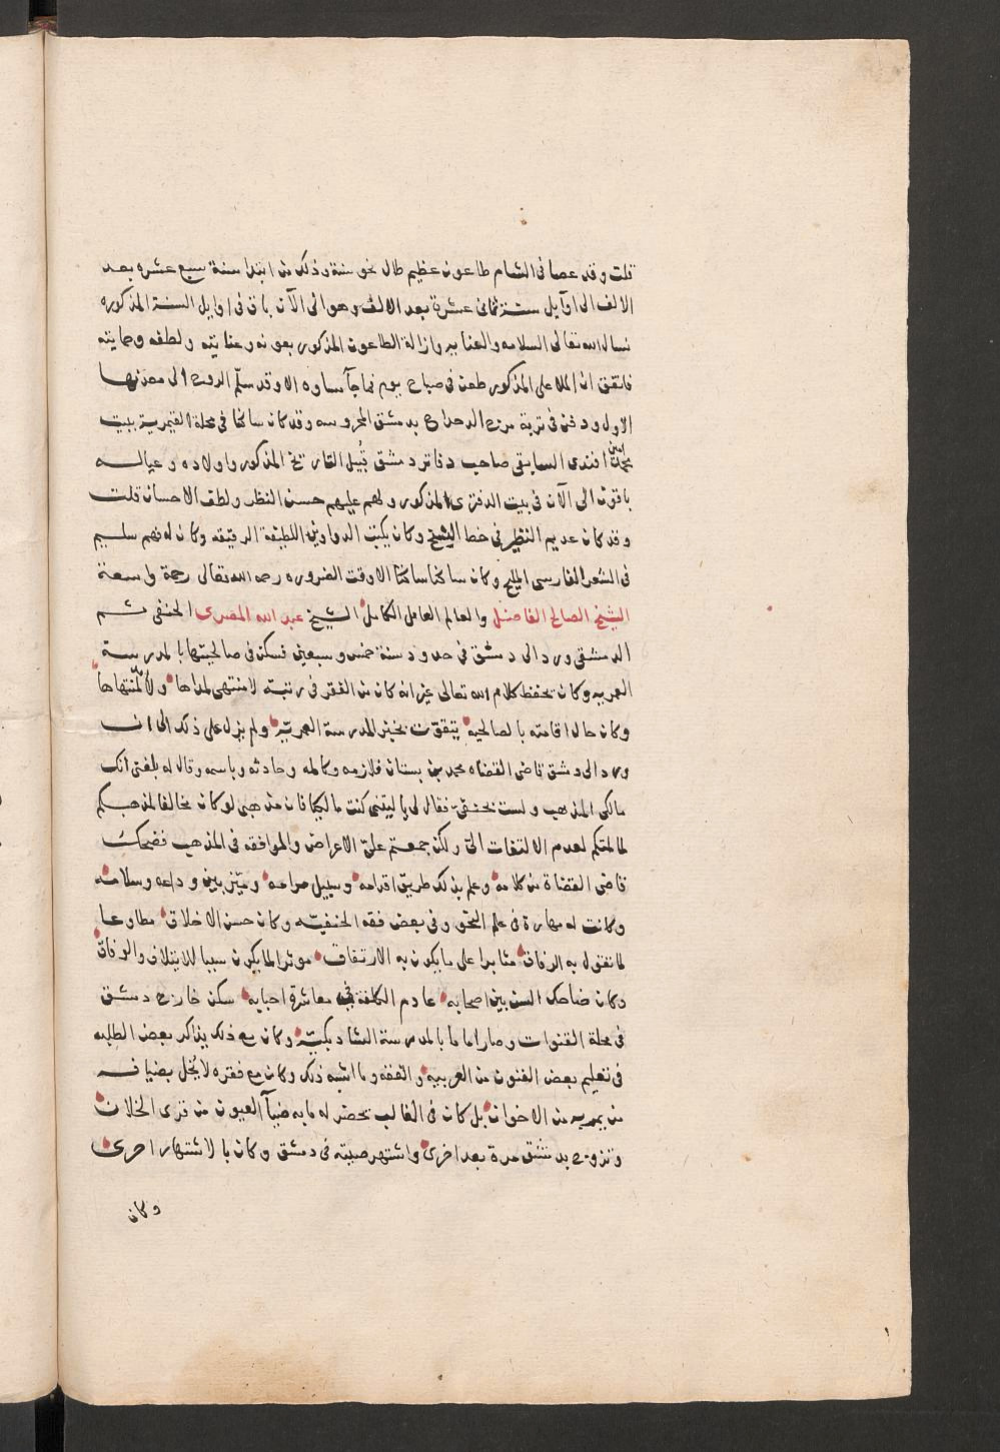 قلت وقد عصا في الشام طاعون عظيم طال نحو سنة وذلك من ابتدا سنة سبع عشره بعد
الالف الى اوآيل سنة ثماني عشرة بعد الالف وهو الى الآن باق في اوايل السنة المذكوره
نسال الله تعالى السلامه والعنايه وازالة الطاعون المذكور بعونه وعنايته ولطفه وحمايته
فاتفق ان الملا على المذكور طعن في صباح يوم فما جآ مساوه الا وقد سلّم الروح الى معدنها
الاول ودفن في تربة مرج الدحداح بدمشق المحروسه وقد كان ساكنا في محلة القيمرية ببيت
محمد امين افندى السابقى صاحب دفاتر دمشق قُبيل التاريخ المذكور واولاده وعياله
باقون الى الآن في بيت الدفترى المذكور ولهم عليهم حسن النظر ولطف الاحسان قلت
وقد كان عديم النظير في خط الشيخ وكان يكتب الدواوين اللطيفة الرقيقه وكان له فهم سليم
في الشعر الفارسى المليح وكان ساكنا ساكتا الا وقت الضروره رحمه الله تعالى رحمة واسعة
الشيخ الصالح الفاضل والعالم العامل الكامل الشيخ عبد الله المصرى الحنفى ثم
الدمشقى ورد الى دمشق في حدود سنة خمس وسبعين فسكن في صالحيتها بالمدرسة
العمريه وكان يحفظ كلام الله تعالى غير انه كان من الفقر في رتبة لا منتهى لمداها ولا لمنتهاها
وكان حال اقامته بالصالحية يتقوت بخبز المدرسة العمريّة ولم يزل على ذلك الى ان
ورد الى دمشق قاضى القضاه محمد بن بستان فلازمه وكالمه وحادثه وباسمه وقال له بلغنى انك
مالكى المذهب ولست بحنفىّ فقال لى يا ليتنى كنت مالكيا فان مذهبى لو كان مخالفا لمذهبكم
لما لمتكم لعدم الالتفات الىّ ولكن جمعتم علىّ الاعراض والموافقه في المذهب فضحك
قاضى القضاة من كلامه وعلم بذلك طريق اقدامه وسبيل مرامه وميّز بين وداعه وسلامه
وكانت له مهارة في علم النحو وفي بعض فقه الحنفيّه وكان حسن الاخلاق مطاوعا
لما تقول به الرفاق مثابرا على ما يكون به الارتفاق موثرا لما يكون سببا للايتلاف والوفاق
وكان ضاحك السن بين اصحابه عادم الكلفة في معاشرة احبابه سكن خارج دمشق
في محلة القنوات وصار اماما بالمدرسة الشاد بكيّة وكان مع ذلك يذاكر بعض الطلبه
في تعليم بعض الفنون من العربيه والفقه وما اشبه ذلك وكان مع فقره لا يُخل بضيافه
من يمر به من الاخوان بل كان في الغالب يحضر له ما به ضيآ العيون من قرى الخلان
وتزوج بدمشق مرة بعد اخرى واشتهر صيته في دمشق وكان بالاشتهار احرى
وكان